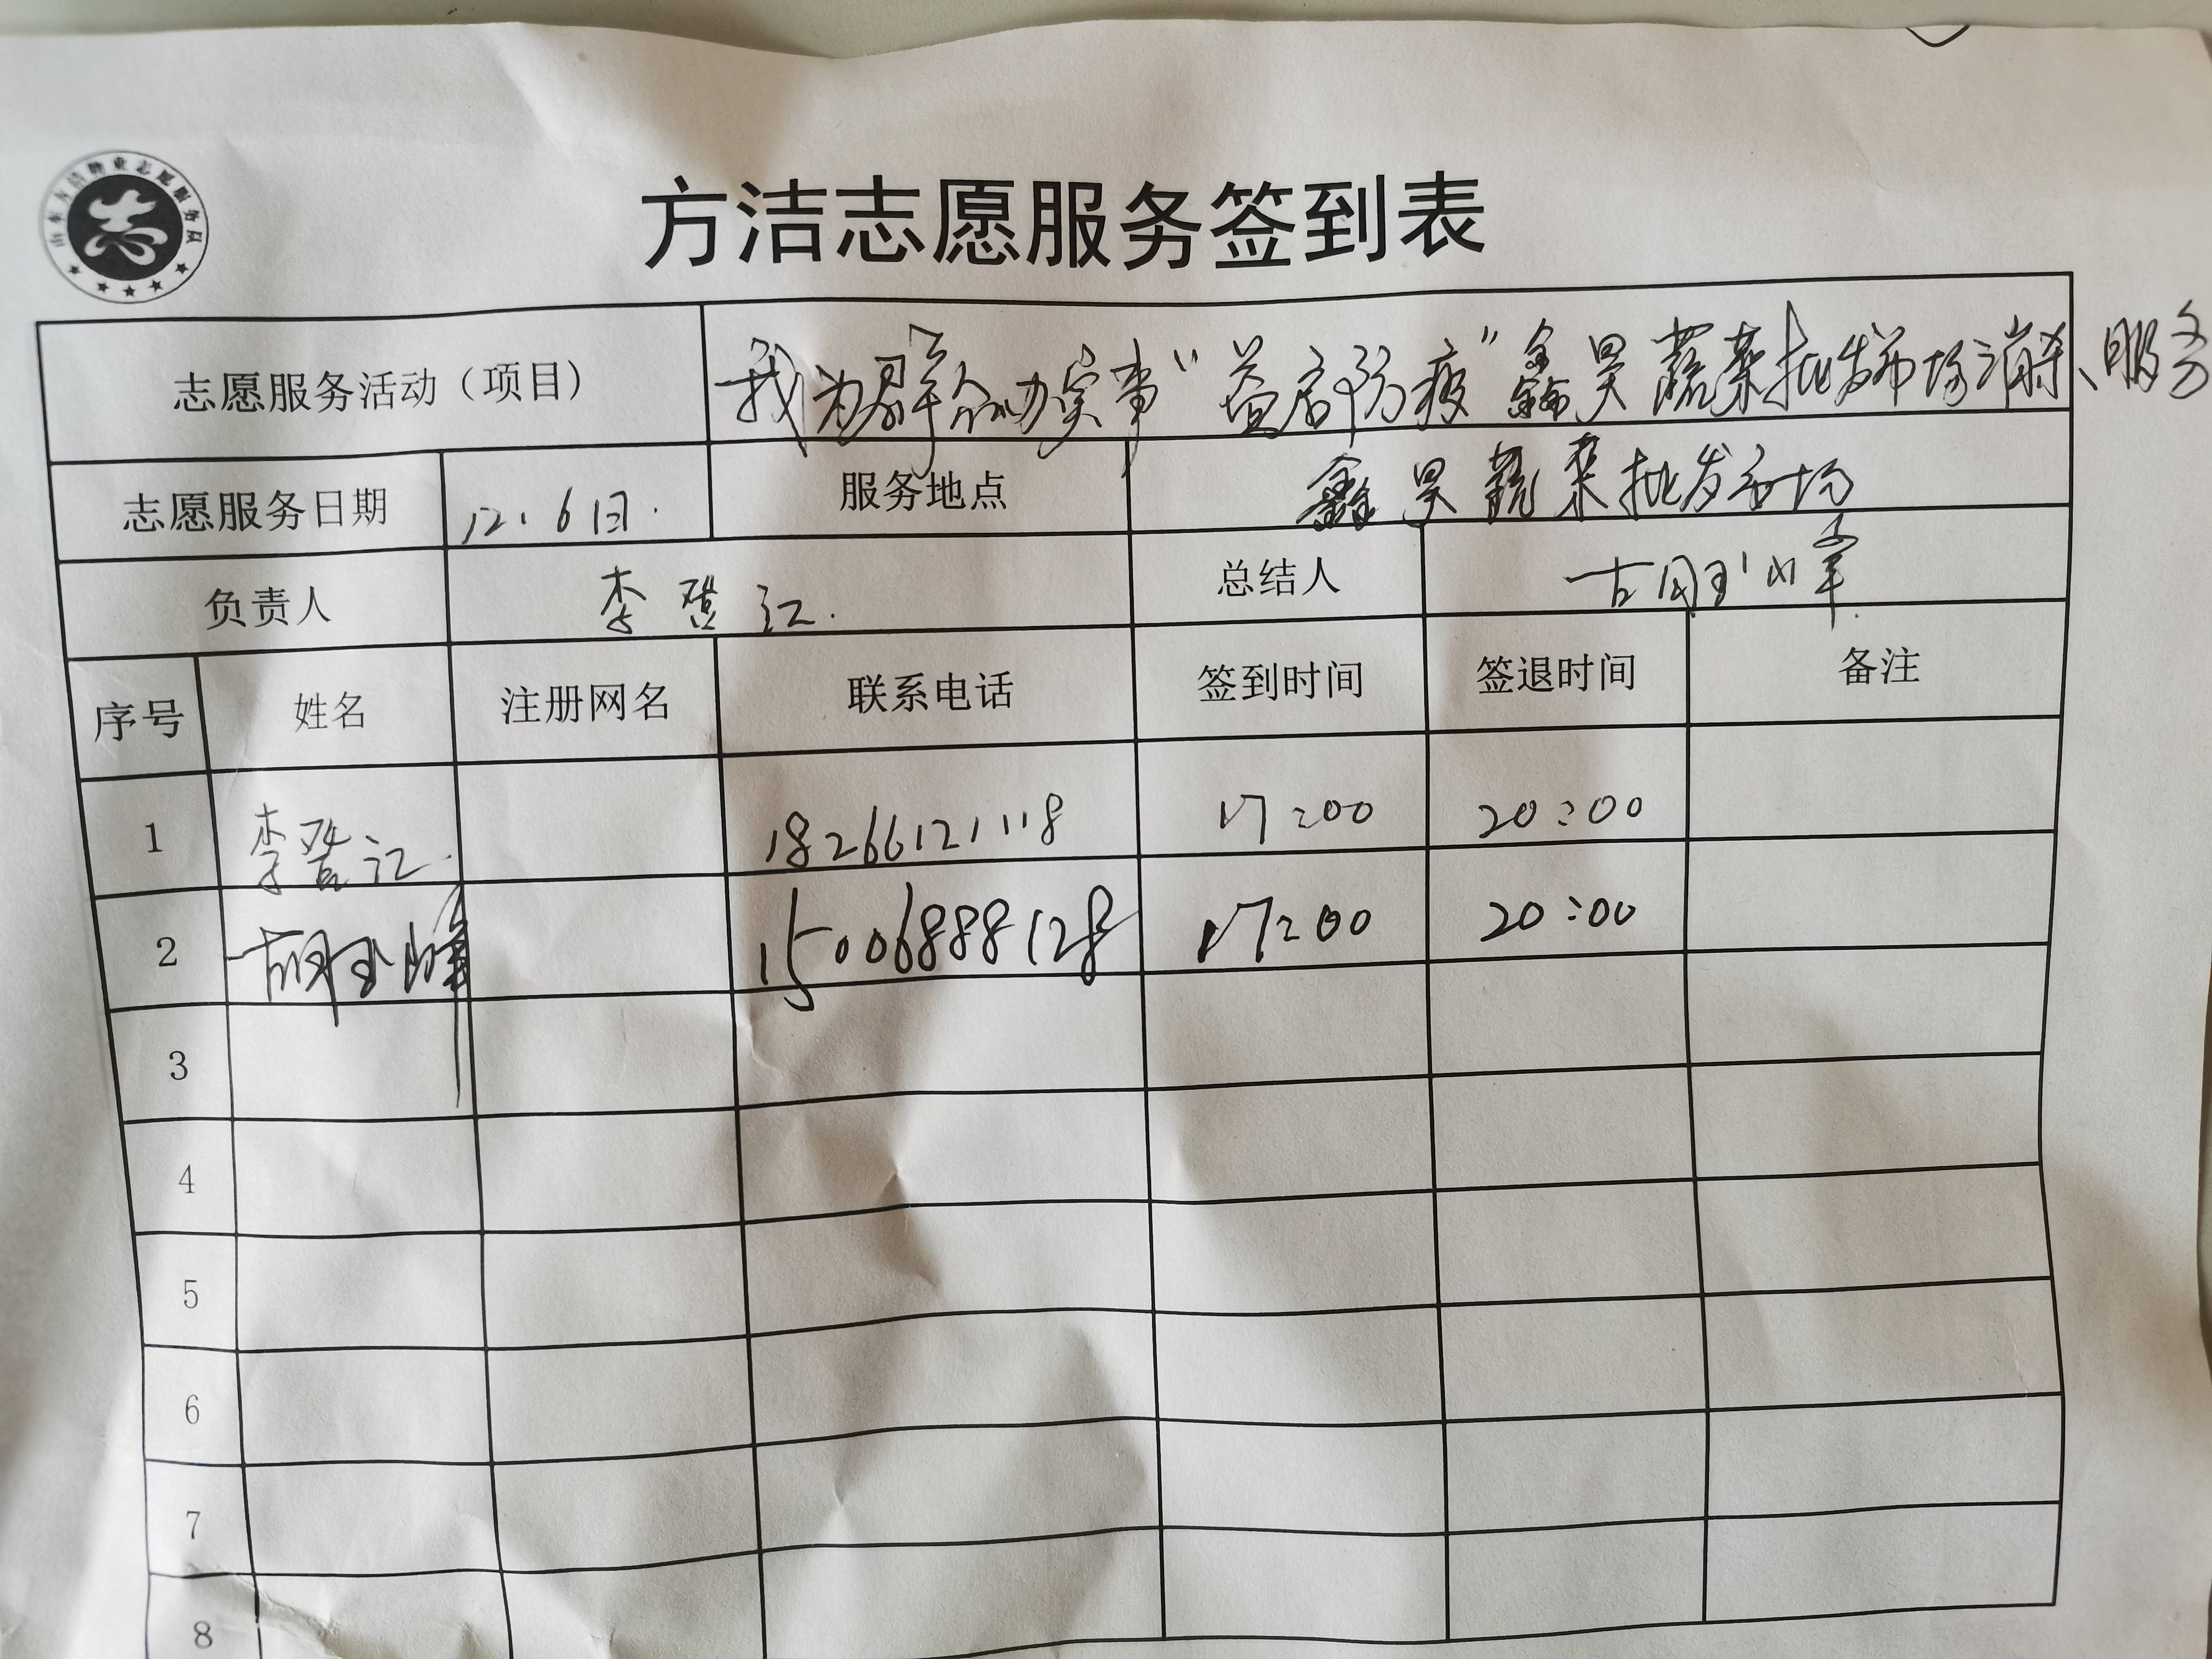 山东方洁物业志愿服务队
方洁志愿服务签到表
志愿服务活动（项目） 我为群众办实事“益启防疫”鑫昊蔬菜批发市场消杀服务
志愿服务日期 12.6日. 服务地点 鑫昊蔬菜批发市场
负责人 李 江. 总结人 胡玉峰
序号 姓名 注册网名 联系电话 签到时间 签退时间 备注
1 李 江. 18266121118 17:00 20:00
2 胡玉峰 15006888128 17:00 20:00
3
4
5
6
7
8